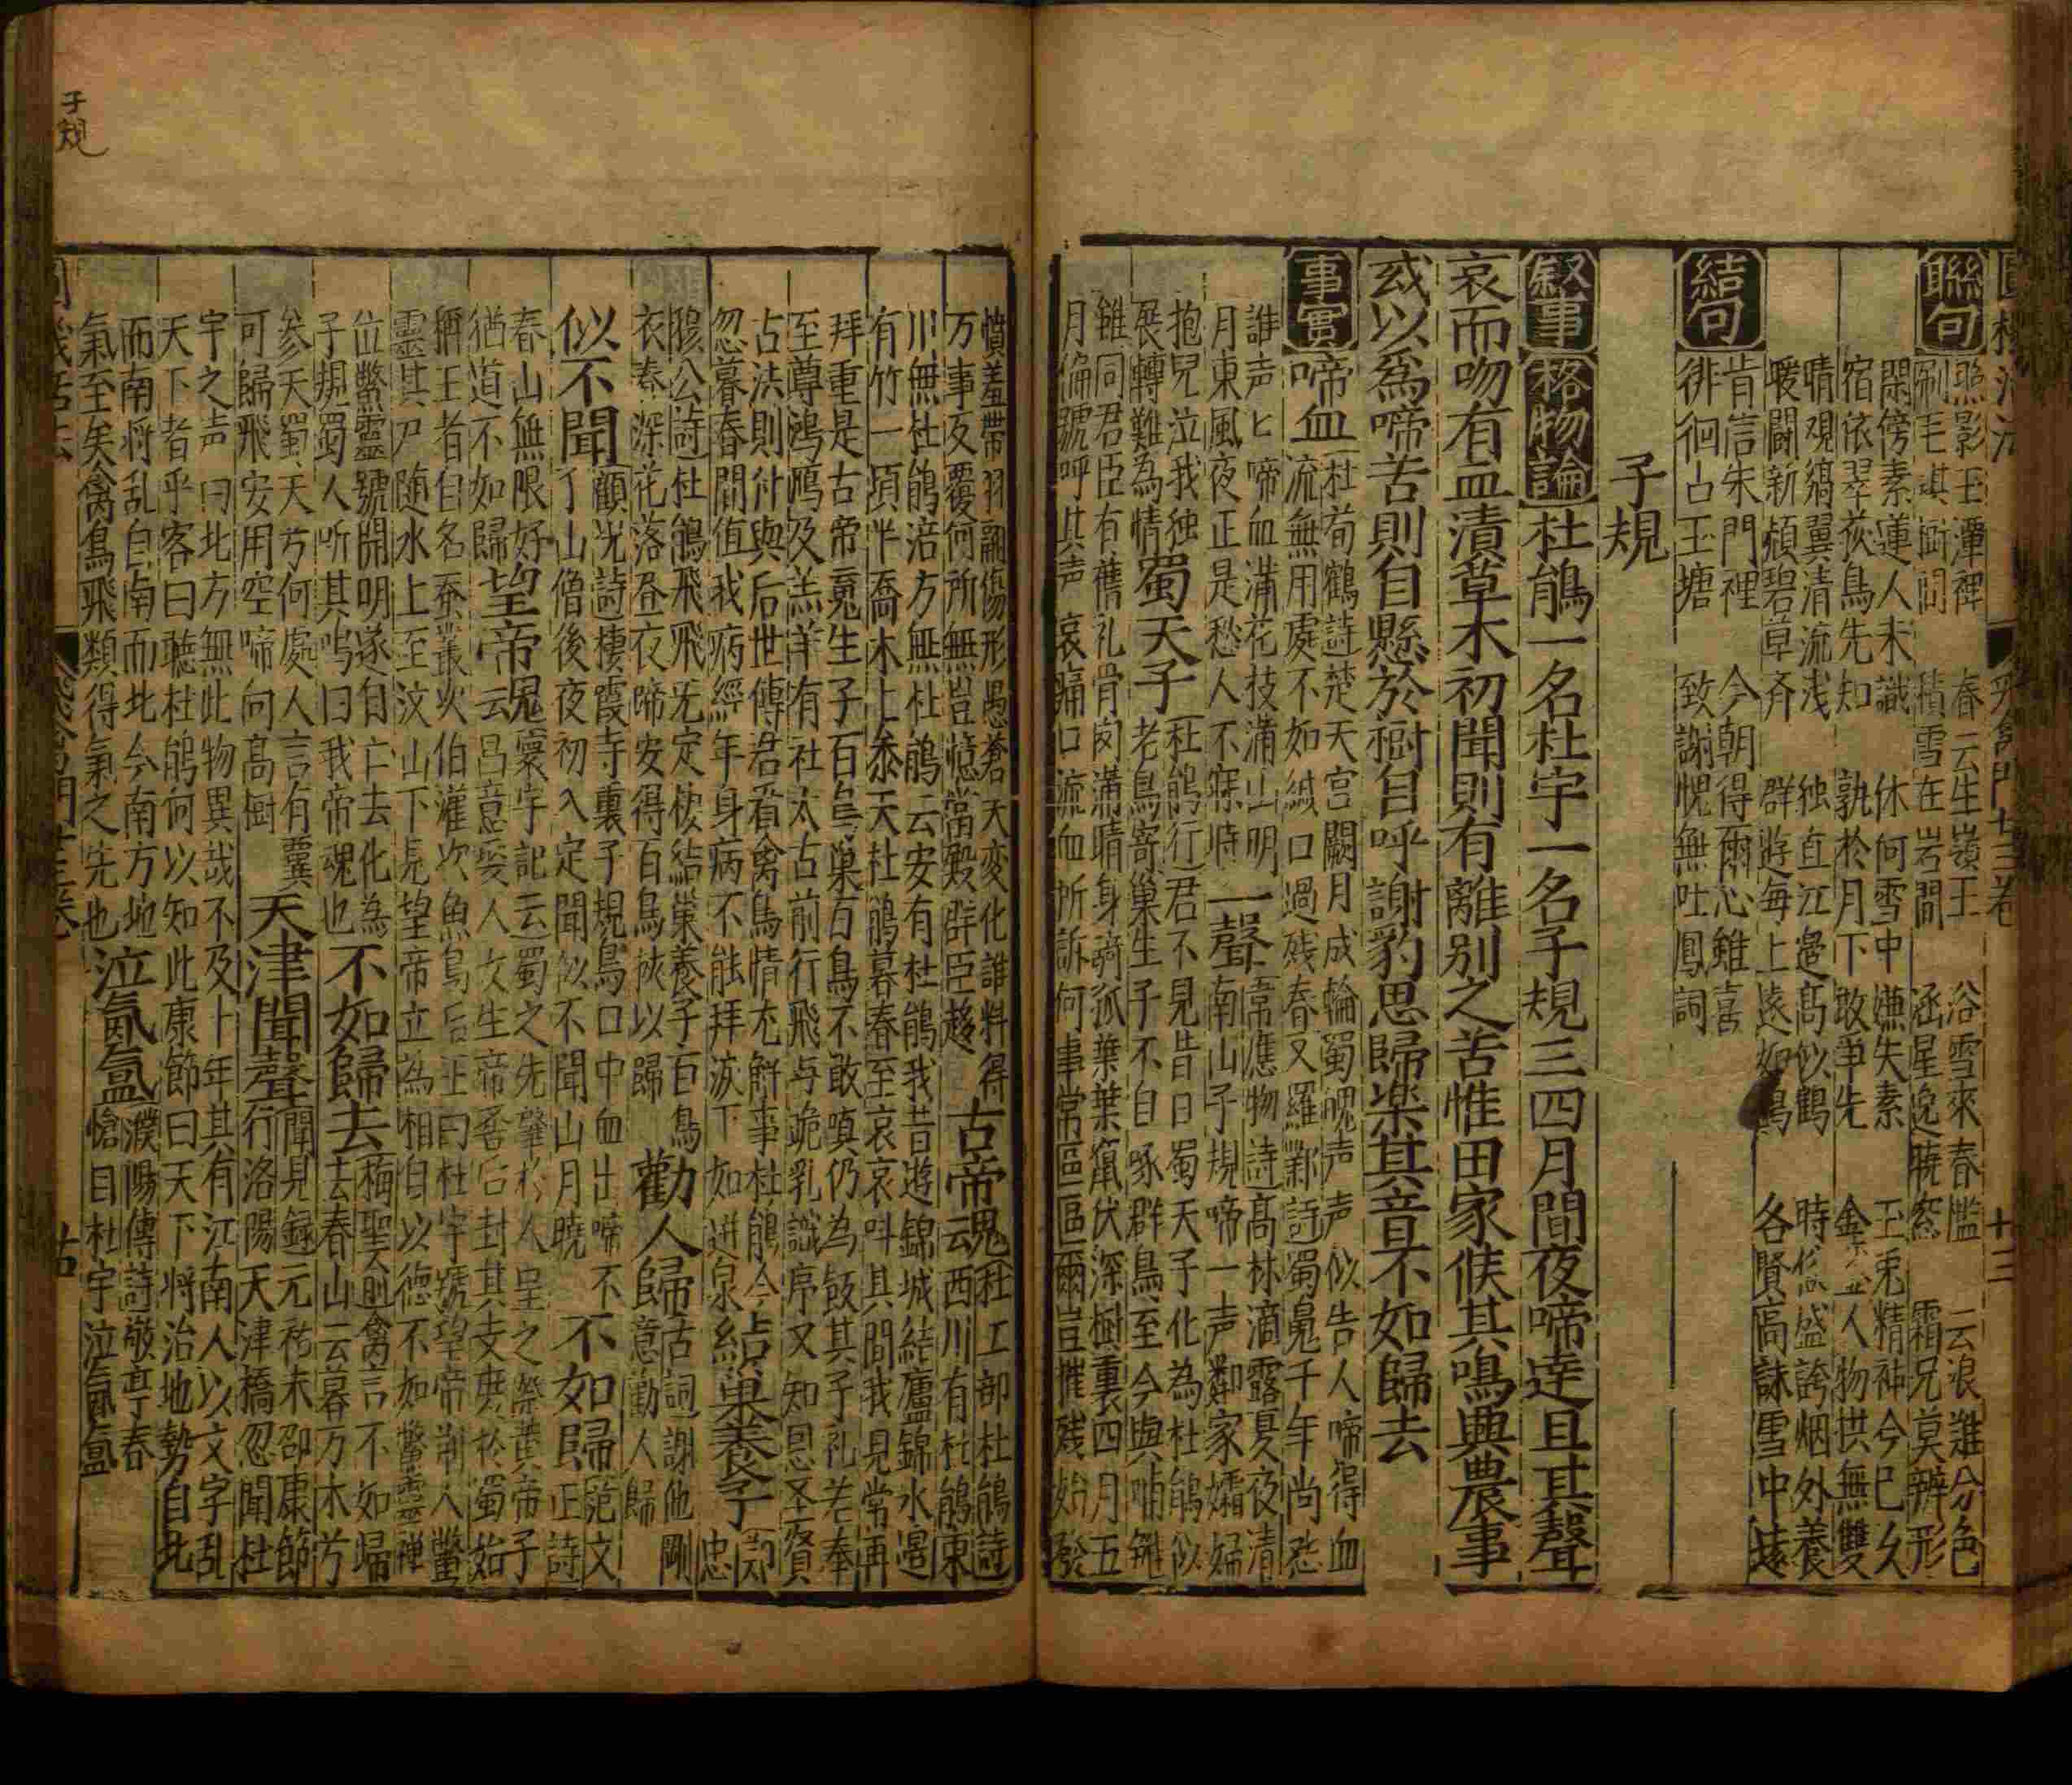 聯句
照影玉潭裡
刷毛淇樹間
春云生嶺王
積雪在岩間
浴雪來春㴝
涵星逸暁窓
云浪難分色
霜兄莫辨形
閑傍素蓮人未識
宿依翠荻鳥先知
休何雪中嫌失素
孰於月下敢争先
玉兎精神今已久
人物拱無雙
晴覌縞翼清流浅
暖闘新頳碧草齐
独直江邉髙似鶴
群遊每上遠如鳥
時盛誇烟外養
各賢高詠雪中棲
結句
肯信朱門裡
徘徊占玉塘
今朝得爾心雖喜
致謝愧無吐鳳詞
子規
叙事
格物論
杜鵑一名杜宇一名子規三四月間夜啼達旦其聲
哀而吻有血漬草木初聞則有離别之苦惟田家俟其鳴興農事
或以爲啼苦則自懸於樹自呼謝豹思歸楽其音不如歸去
事實
啼血
杜荀鶴詩楚天宮闕月成輪蜀魄声声似告人啼得血
流無用處不如緘口過残春又羅鄴詩蜀䰟千年尚怨
誰声匕啼血滿花技滿山明
月東風夜正是愁人不寐時
一聲
常應物詩高林滴露夏夜清
南山子規啼一声鄰家孀婦
抱兒泣我独
展轉難為情
蜀天子
杜鵑行君不見昔日蜀天子化為杜鵑似
老鳥寄巢生子不自啄群鳥至今與哺雛
雖同君臣有舊礼骨肉滿眼身羇孤業業竄伏深樹裏四月五
月偏號呼其声哀痛口流血所訴何事常區區爾豈摧残始發
憤羞帶羽翮傷形愚蒼天変化誰料得
万事反覆何所無豈憶當殿群臣趍
古帝魂
杜工部杜鵑詩
云西川有杜鵑東
川無杜鵑涪方無杜鵑云安有杜鵑我昔遊錦城結廬錦水邉
有竹一頃半喬木上泰天杜鵑暮春至哀哀呌其間我見常再
拜重是古帝䰟生子百鳥巢百鳥不敢嗔仍為飯其子礼若奉
至尊鴻鴈及羔羊有社太古前行飛与跪乳識序又知恩圣賢
古法則付與后世傳君看禽鳥情尤觧事杜鵑今
忽暮春間值我病經年身病不能拜涙下如迸泉
結巢養子
忠
隐公詩杜鵑飛飛旡定棲結巢養子百鳥
衣春深花落昼夜啼安得百鳥挾以歸
勸人歸
古詞謝他剛
意勸人歸
似不聞
顧况詩棲霞寺裏子規鳥口中血出啼不
了山僧後夜初入定聞似不聞山月曉
不如歸
范文
正詩
春山無限好
猶道不如歸
望帝䰟
寰宇記云蜀之先肇於人皇之祭黄帝子
云昌意娶人女生帝嚳后封其支庶於蜀始
稱王者自名蚕叢次伯灌次魚鳥后王曰杜宇號望帝荆人鱉
靈其尸随水上至汶山下見望帝立為相自以徳不如鱉靈禅
位鱉靈號開明遂自亡去化為
子規蜀人听其鸣曰我帝魂也
不如歸去
梅聖俞禽言不如歸
去春山云暮万木兮
参天蜀天兮何處人言有翼
可歸飛安用空啼向髙樹
天津聞聲
聞見録元祐末邵康節
行洛陽天津橋忽聞杜
宇之声曰北方無此物異哉不及十年其有江南人以文字乱
天下者乎客曰聽杜鵑何以知此康節曰天下将治地勢自北
而南将乱自南而北今南方地
氣至矣禽鳥飛類得氣之先也
泣氤氲
濮陽傳詩敬亭春
愴目杜宇泣氤氲
子規